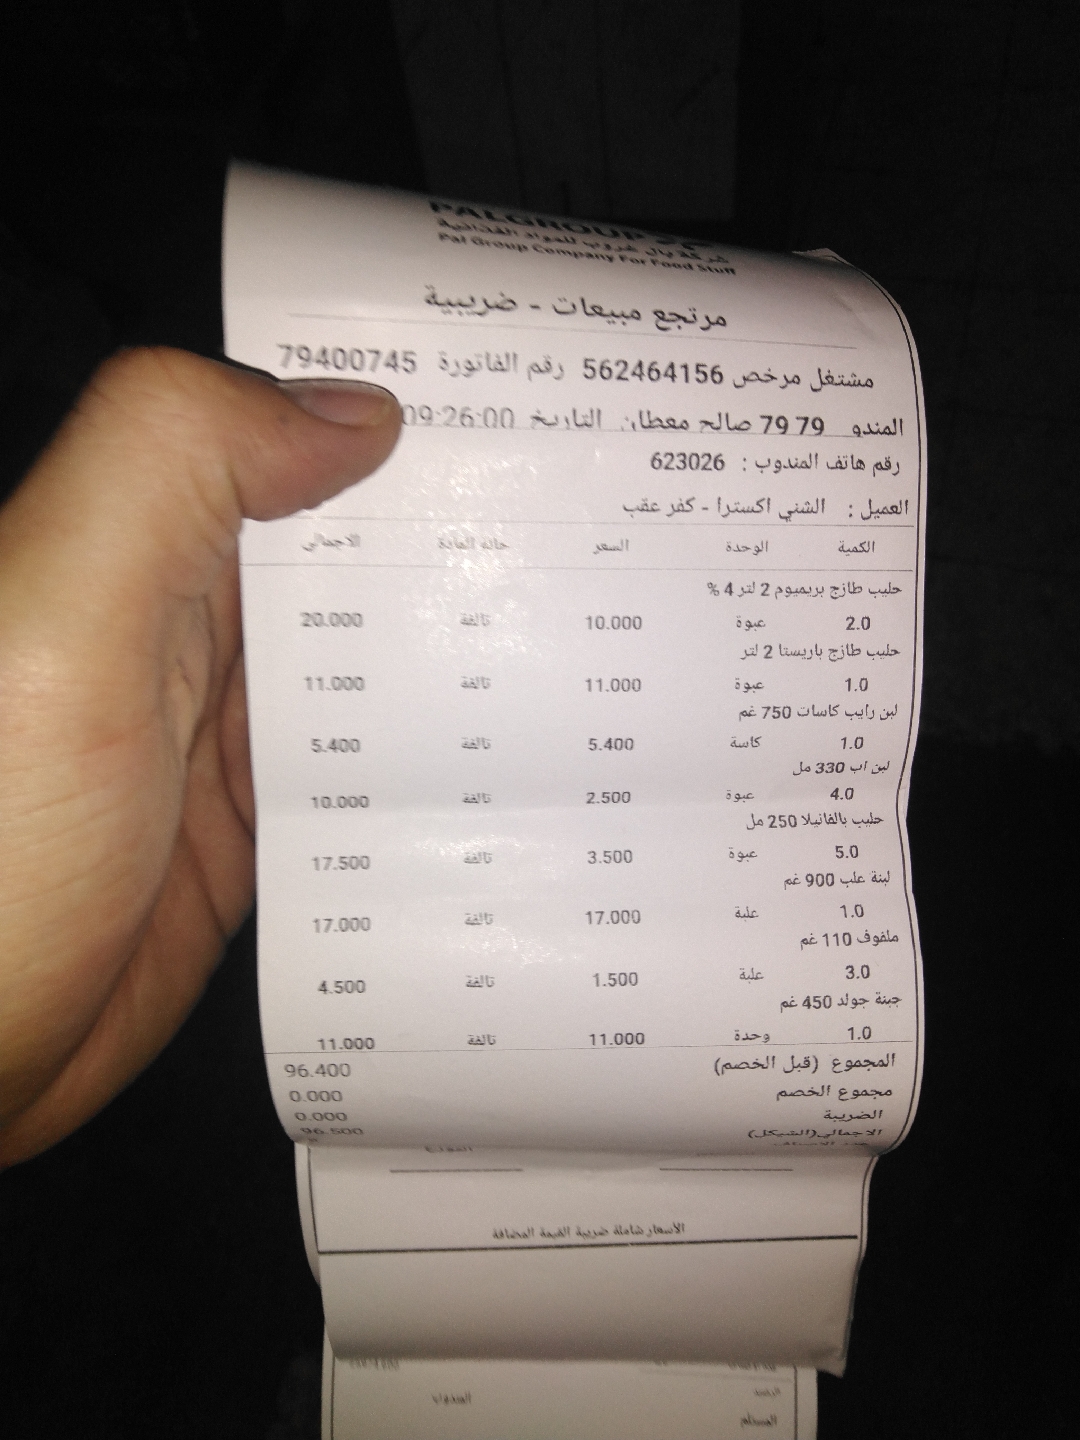 PALGROUP
شركة بال غروب للمواد الغذائية
Pal Group Company For Food Stuff
مرتجع مبيعات - ضريبية
مشتغل مرخص 562464156 رقم الفاتورة 79400745
المندو 79 79 صالح معطان التاريخ 09:26:00
رقم هاتف المندوب : 623026
العميل : الشني اكسترا - كفر عقب
الكمية الوحدة السعر حالة المادة الاجمالي
حليب طازج بريميوم 2 لتر 4 %
2.0 عبوة 10.000 تالفة 20.000
حليب طازج باريستا 2 لتر
1.0 عبوة 11.000 تالفة 11.000
لبن رايب كاسات 750 غم
1.0 كاسة 5.400 تالفة 5.400
لبن اب 330 مل
4.0 عبوة 2.500 تالفة 10.000
حليب بالفانيلا 250 مل
5.0 عبوة 3.500 تالفة 17.500
لبنة علب 900 غم
1.0 علبة 17.000 تالفة 17.000
ملفوف 110 غم
3.0 علبة 1.500 تالفة 4.500
جبنة جولد 450 غم
1.0 وحدة 11.000 تالفة 11.000
المجموع (قبل الخصم) 96.400
مجموع الخصم 0.000
الضريبة 0.000
الاجمالي(الشيكل) 96.500
الأسعار شاملة ضريبة القيمة المضافة
المندوب
المستلم